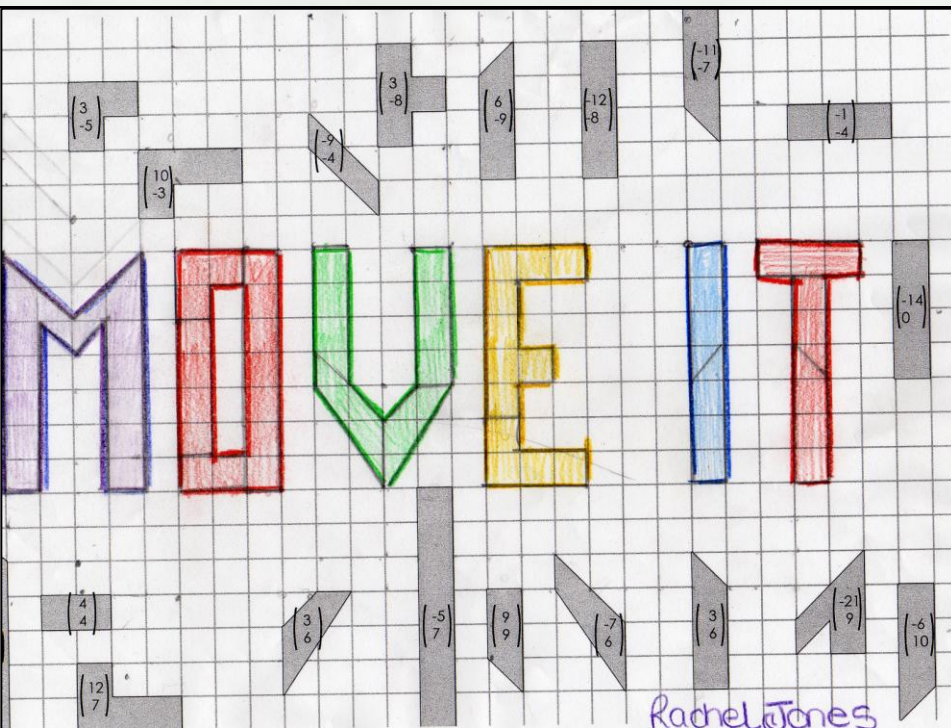 (3
-5)
(10
-3)
(-9
-4)
(3
-8)
(6
-9)
(-12
-8)
(-11
-7)
(-1
-4)
MOVE IT
(-14
0)
(4
4)
(12
7)
(3
6)
(-5
7)
(9
9)
(-7
6)
(3
6)
(-21
9)
(-6
10)
Rachel Jones